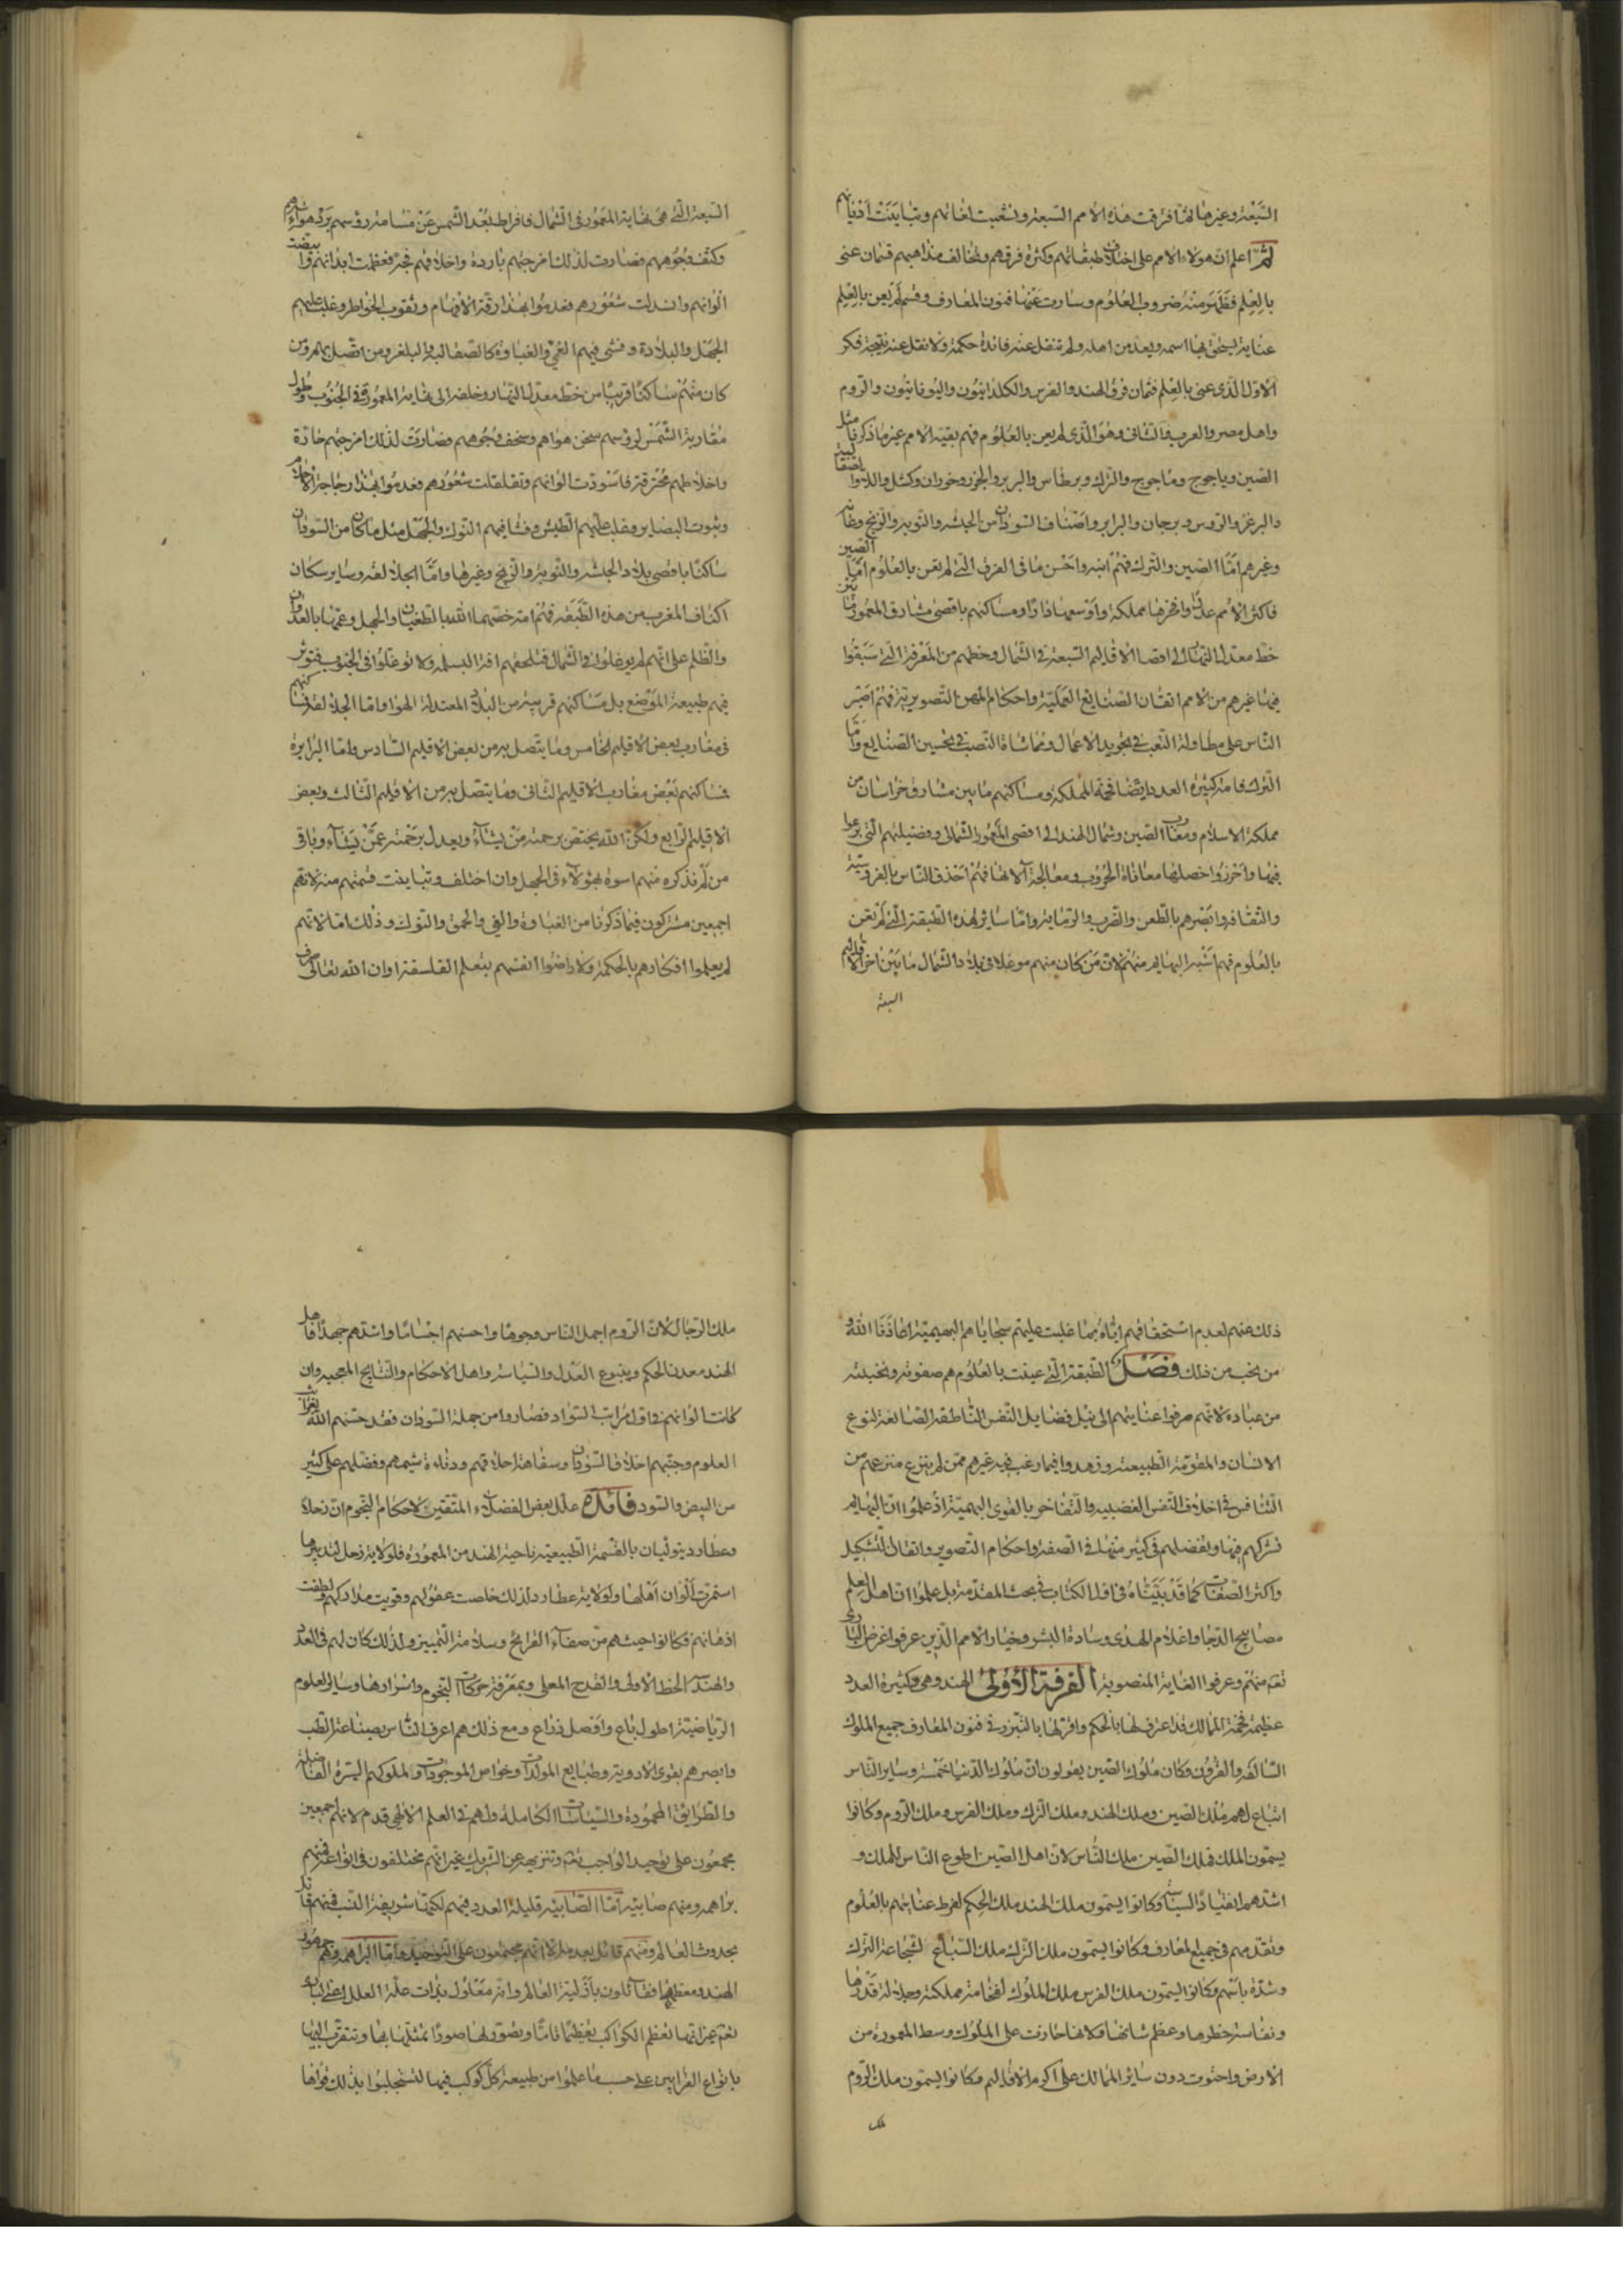 السبعة وغيرها ثمّ افترقت هذه الأمم السبعة وتشعبت لغاتهم وتباينت أديانهم
ثمّ اعلم انّ هؤلاء الامم على اختلاف طبقاتهم وكثرة فرقهم وتخالف مذاهبهم قسمان عنى
بالعلم فظهر منه ضروب العلوم وسارت عنها فنون المعارف وقسم لم يعن بالعلم
عناية يستحق بها اسمه ويعد من اهله ولم تنقل عنه فائدة حكمة ولا نقل عنه نتيجة فكر
الاول الّذى عنى بالعلم ثمان فرق الهند والفرس والكلدانيّون واليونانيّون والرّوم
واهل مصر والعرب والثانى وهو الّذى لم يعن بالعلوم فهم بقية الامم غير ما ذكرنا مثل
الصين وياجوج وماجوج والترك وبرطاس والبربر والخزر وخوران وكشل واللان والصقالبة
والبرغز والروس وبرجان والبرابر واصناف السودان من الحبشه والنوبه والزنج وغانه
وغيرهم امّا الصين والترك فهم انبه واحسن ما فى الفرق الّتى لم تعن بالعلوم امّا الصين
فاكثر الأمم عددًا وافخرها مملكة واوسعها دارًا ومساكنهم باقصى مشارق المعمور ما بين
خط معدل النهار الى اقصا الاقاليم السبعة فى الشمال وحظهم من المعرفة الّتى سبقوا
فيها غيرهم من الامم اتقان الصنايع العمليّة واحكام المهن التصويرية فهم اصبر
النّاس على مطاولة التعب فى تجويد الاعمال ومماشاة النصب فى تحسين الصنايع وامّا
الترك فامة كثيرة العدد ايضا فخمة المملكة ومساكنهم ما بين مشارق خراسان من
مملكة الاسلام ومغارب الصين وشمال الهند الى اقصى المعمور الشمالى وفضيلتهم الّتى برعوا
فيها واحرزوا خصلها معاناة الحروب ومعالجة آلاتها فهم احذق النّاس بالفروسية
والثقافه وابصرهم بالطعن والضرب والرماية وامّا ساير هذه الطبقة الّتى لم تعن
بالعلوم فهم اشبه البهايم منهم لان من كان منهم موغلا فى بلاد الشمال ما بين اخر الاقاليم
السبعة
السبعة الّتى هى نهاية المعمور فى الشمال فافراط بعد الشمس عن مسامتة رؤسهم برد هواءهم
وكثف وجوههم فصارت لذلك امزجتهم باردة واخلاقهم فجة فعظمت ابدانهم وابيضت
الوانهم وانسدلت شعورهم فعدموا بهذا رقة الأفهام وثقوب الخواطر وغلب عليهم
الجهل والبلادة وفشى فيهم الغىّ والغباوة كالصقالبة والبلغر ومن اتصل بهم ومن
كان منهم ساكنًا قريبًا من خط معدل النهار وخلفه الى نهاية المعمور فى الجنوب وطول
مقاربة الشمس لرؤسهم سخن هواهم وسخف وجوههم فصارت لذلك امزجتهم حادة
واخلاطهم محترقة فاسودّت الوانهم وتفلفلت شعورهم فعدموا بهذا رجاحة الاحلام
وثبوت البصاير وغلب عليهم الطيش وفشا فيهم النوك والجهل مثل ما كان من السودان
ساكنًا باقصى بلاد الحبشه والنوبة والزنج وغيرها وامّا الجلالقه وساير سكان
اكناف المغرب من هذه الطبقة فهم امة خصّها الله بالطغيان والجهل وعمّها بالعدوان
والظلم على انهم لم يوغلوا فى الشمال فتلحقهم افة البسله ولا توغلوا فى الجنوب فتوثر
فيهم طبيعة الموضع بل مساكنهم قريبة من البلاد المعتدلة الهوا فامّا الجلالقه فمساكنهم
فى مغارب بعض الاقليم الخامس وما يتصل به من بعض الاقليم السادس وامّا البرابرة
فمساكنهم بعض مغارب الاقليم الثانى وما يتصل به من الاقليم الثالث وبعض
الاقليم الرّابع ولكن الله يختص برحمته من يشآء ويعدل برحمته عمّن يشآء وباقى
من لم نذكره منهم اسوة بهؤلاء فى الجهل وان اختلف وتباينت قسمتهم منه لانهم
اجمعين مشتركون فيما ذكرنا من الغباوة والغى والحمق والنوك وذلك امّا لانهم
لم يعملوا افكارهم بالحكمة ولا راضوا انفسهم بتعلم الفلسفة او ان الله تعالى صرف
ذلك عنهم لعدم استحقاقهم ايّاه بما غلبت عليهم سجاياهم البهيمية اعاذنا الله و
من نحب من ذلك فصل الطبقة الّتى عنيت بالعلوم هم صفوته ونخبته
من عباده لانهم صرفوا عنايتهم الى نيل فضايل النفس الناطقة الصانعة لنوع
الانسان والمقومة لطبيعته وزهدوا فيما رغب فيه غيرهم ممن لم ينزع منزعهم من
التنافس فى اخلاق النفس الغضبيه والتفاخر بالقوى البهيميّة اذ علموا ان البهايم
تشركهم فيها وتفضلهم فى كثير منها فى الصفة واحكام التصوير واتقان التشكيل
واكثر الصفات كما قد بيّناه فى اول الكتاب فى بحث المقدمة بل علموا ان اهل العلم
مصابيح الدّجا واعلام الهدى وسادة البشر وخيار الامم الّذين عرفوا غرض البارى
تعم منهم وعرفوا الغاية المنصوبة الفرقة الأولى الهند وهى كثيرة العدد
عظيمة فخمة الممالك قد اعترف لها بالحكم واقرّ لها بالتبرّز فى فنون المعارف جميع الملوك
السالفه والقرون وكان ملوك الصين يقولون ان ملوك الدّنيا خمسة وساير النّاس
اتباع لهم ملك الصين وملك الهند وملك الترك وملك الفرس وملك الروم وكانوا
يسمّون الملك فملك الصين ملك النّاس لان اهل الصين اطوع الناس للملك و
اشدهم انقيادًا للسياسة وكانوا يسمون ملك الهند ملك الحكم لفرط عنايتهم بالعلوم
وتقدمهم فى جميع المعارف وكانوا يسمون ملك الترك ملك السباع لشجاعة الترك
وشدّة باسهم وكانوا يسمون ملك الفرس ملك الملوك لفخامة مملكته وجلالة قدرها
ونفاسة خطرها وعظم شانها فلانها حازت على الملوك وسط المعمورة من
الارض واحتوت دون ساير الممالك على اكرم الاقاليم وكانوا يسمون ملك الرّوم
ملك
ملك الرّجال لان الرّوم اجمل النّاس وجوها واحسنهم اجسامًا واشدّهم جهدًا فاهل
الهند معدن الحكم وينبوع العدل والسياسة واهل الاحكام والنتايج العجيبه وان
كانت الوانهم فى اول مراتب السّواد فصاروا من جملة السودان فقد جنبهم الله بغرايب
العلوم وجنبهم اخلاق السودان وسفاهة احلاقهم ودناءة شيمهم وفضلهم على كثير
من البيض والسود فائدة علل بعض الفضلاء المتقين لاحكام النجوم ان زحلًا
وعطارد يتوليان بالقسمة الطبيعيّة ناحية الهند من المعمورة فلولاية زحل لتدبيرها
اسمرّت الوان اهلها ولولاية عطارد لذلك خلصت عقولهم وقويت مداركهم ولطفت
اذهانهم فكانوا حيث هم من صفاء القرايح وسلامة التمييز ولذلك كان لهم فى العدد
والهندسة الحظ الاوفى والقدح المعلى وبمعرفة حركات النجوم واسرارها وساير العلوم
الرّياضيّة اطول باع وافضل ذراع ومع ذلك هم اعرف النّاس بصناعة الطب
وابصرهم بقوى الادوية وطبايع المولدات وخواص الموجودات ولملوكهم السّيرة الفاضلة
والطرايق المحمودة والسياسات الكاملة ولهم فى العلم الالهى قدم لانهم اجمعين
مجمعون على توحيد الواجب تعم وتنزيهه عن الشريك غير انهم مختلفون فى انواعه فمنهم
براهمه ومنهم صابيّه امّا الصّابيّه قليلة العدد فيهم لكنها شريفة النسب فمنهم قائل
بحدوث العالم ومنهم قائل بعدمه الا انهم مجتمعون على التوحيد وامّا البراهمه وهم جمهور
الهند ومعظمها فقائلون بازلية العالم وانه معلول بذات علّة العلل اعنى البارى
تعم غير انها تعظم الكواكب تعظيمًا تامًّا وتصور لها صورًا تمثّلها بها وتتقرّب اليها
بانواع القرابين على حسب ما علموا من طبيعة كل كوكب فيها لتستجلبوا بذلك قواها